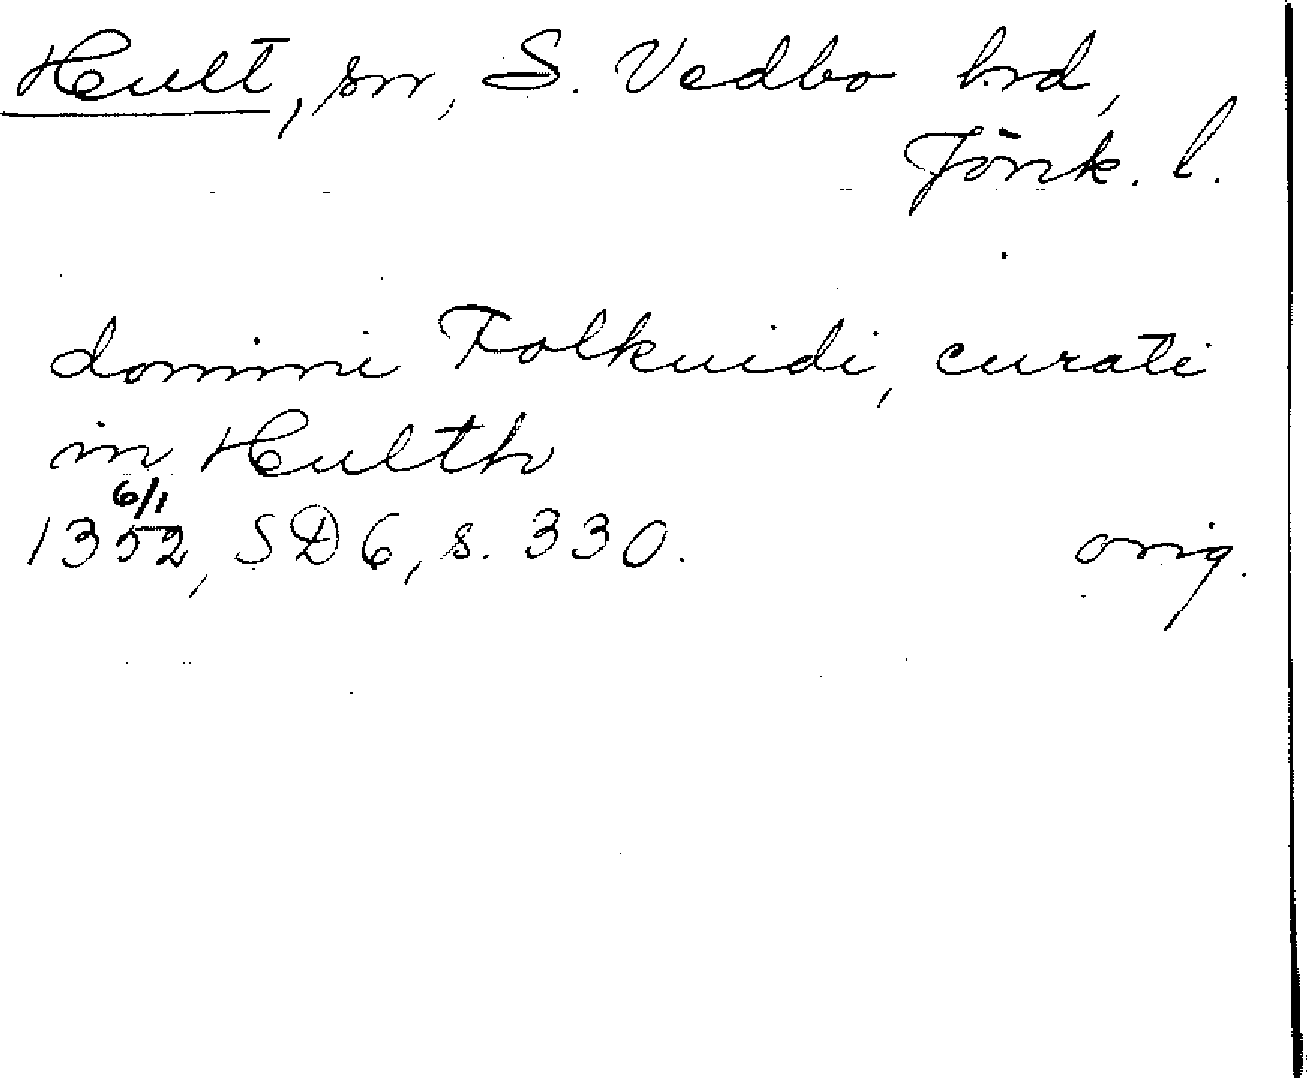 Hult, sn, S. Vedbo hrd,
Jönk. l.
domini Folkuidi, curati
in Hulth
6/1
1352, SD 6, s. 330. orig.